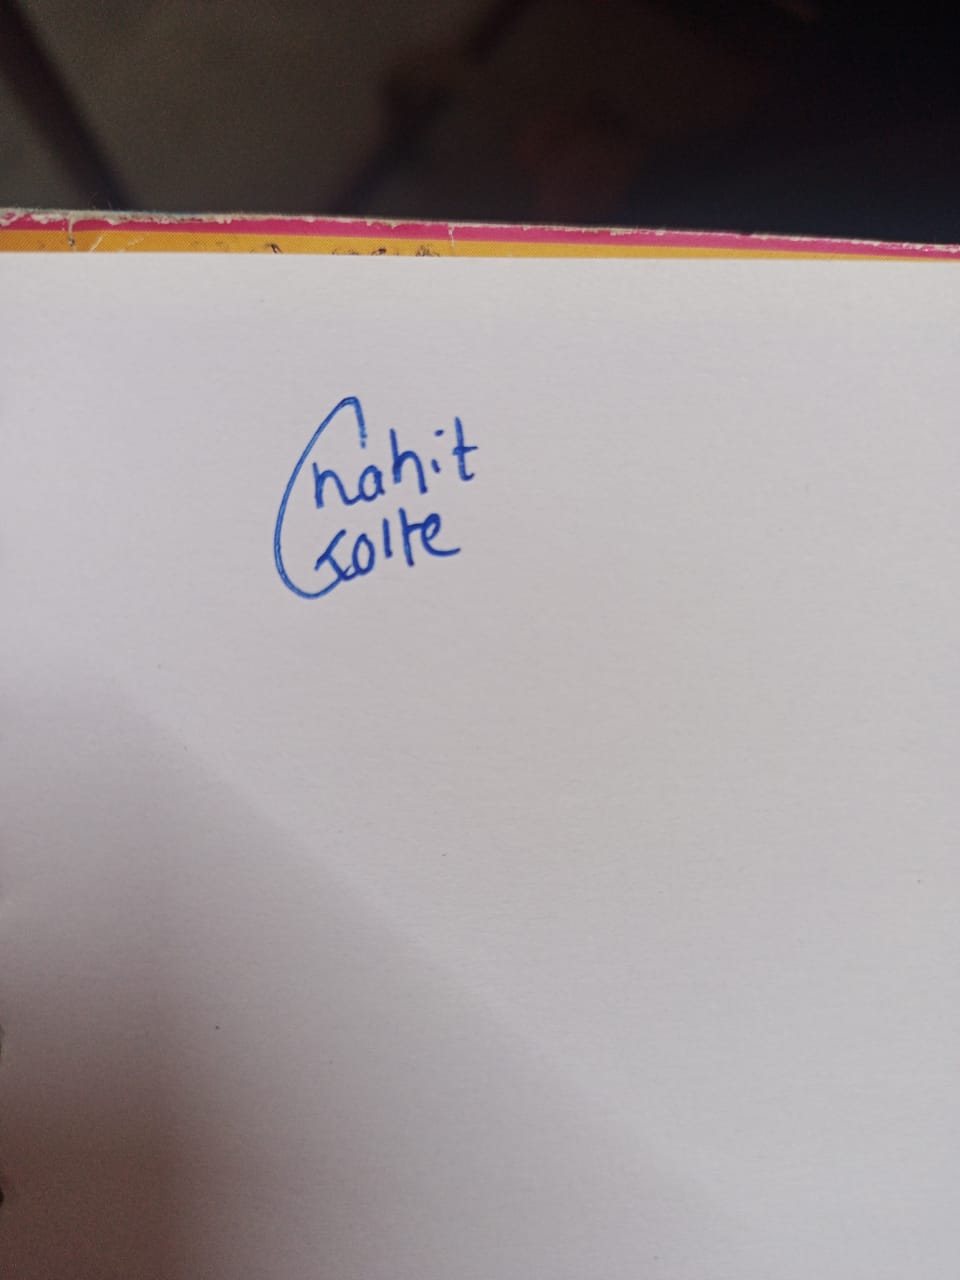 Chahit
Kolte